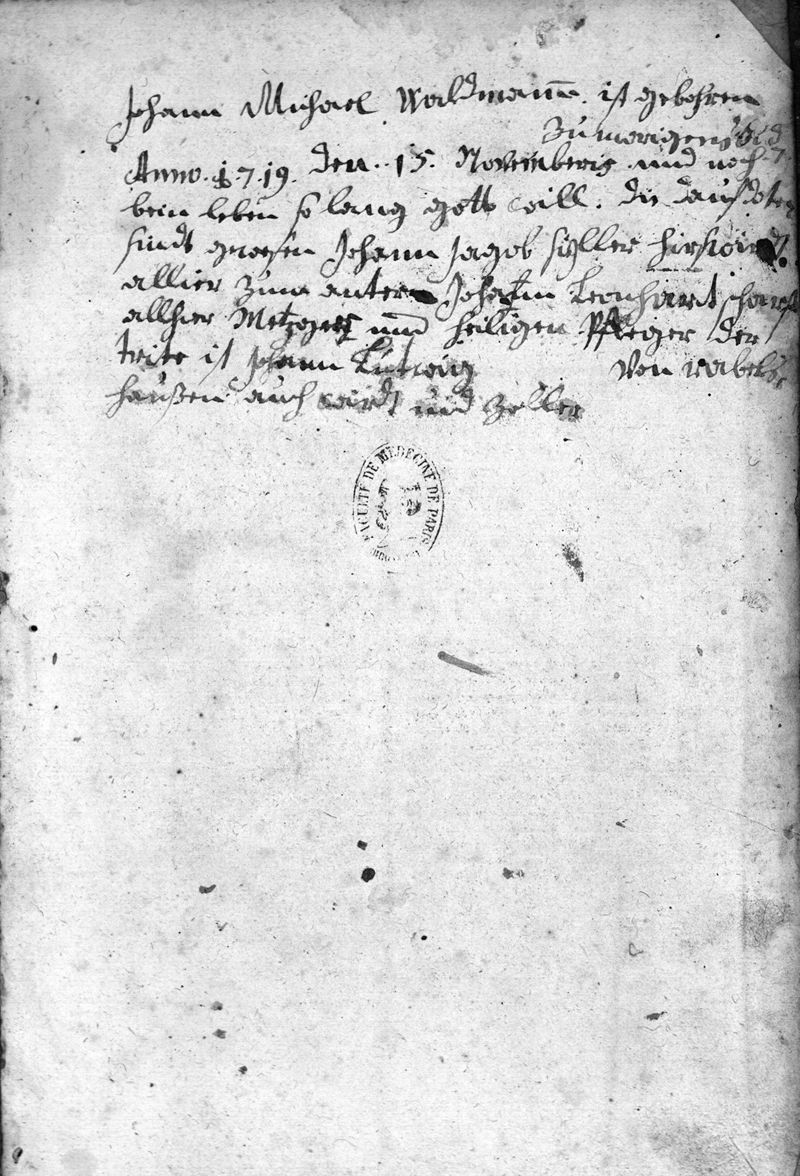 Johann Michael Waldmann. ist gebohren
zu
Anno. 1.7.19. den. 15. Novembris und noch
beim leben so lang gott will. die daufdoten
sindt gewesen Johann Jagob Hirschwirdt.
allier zum antern Johann Leonhart
allhier Metzger und Heiligen Pfleger der
trite ist Johann Lutwig von
haußen auch wirdt und Zoller
FACULTÉ DE MÉDECINE DE PARIS